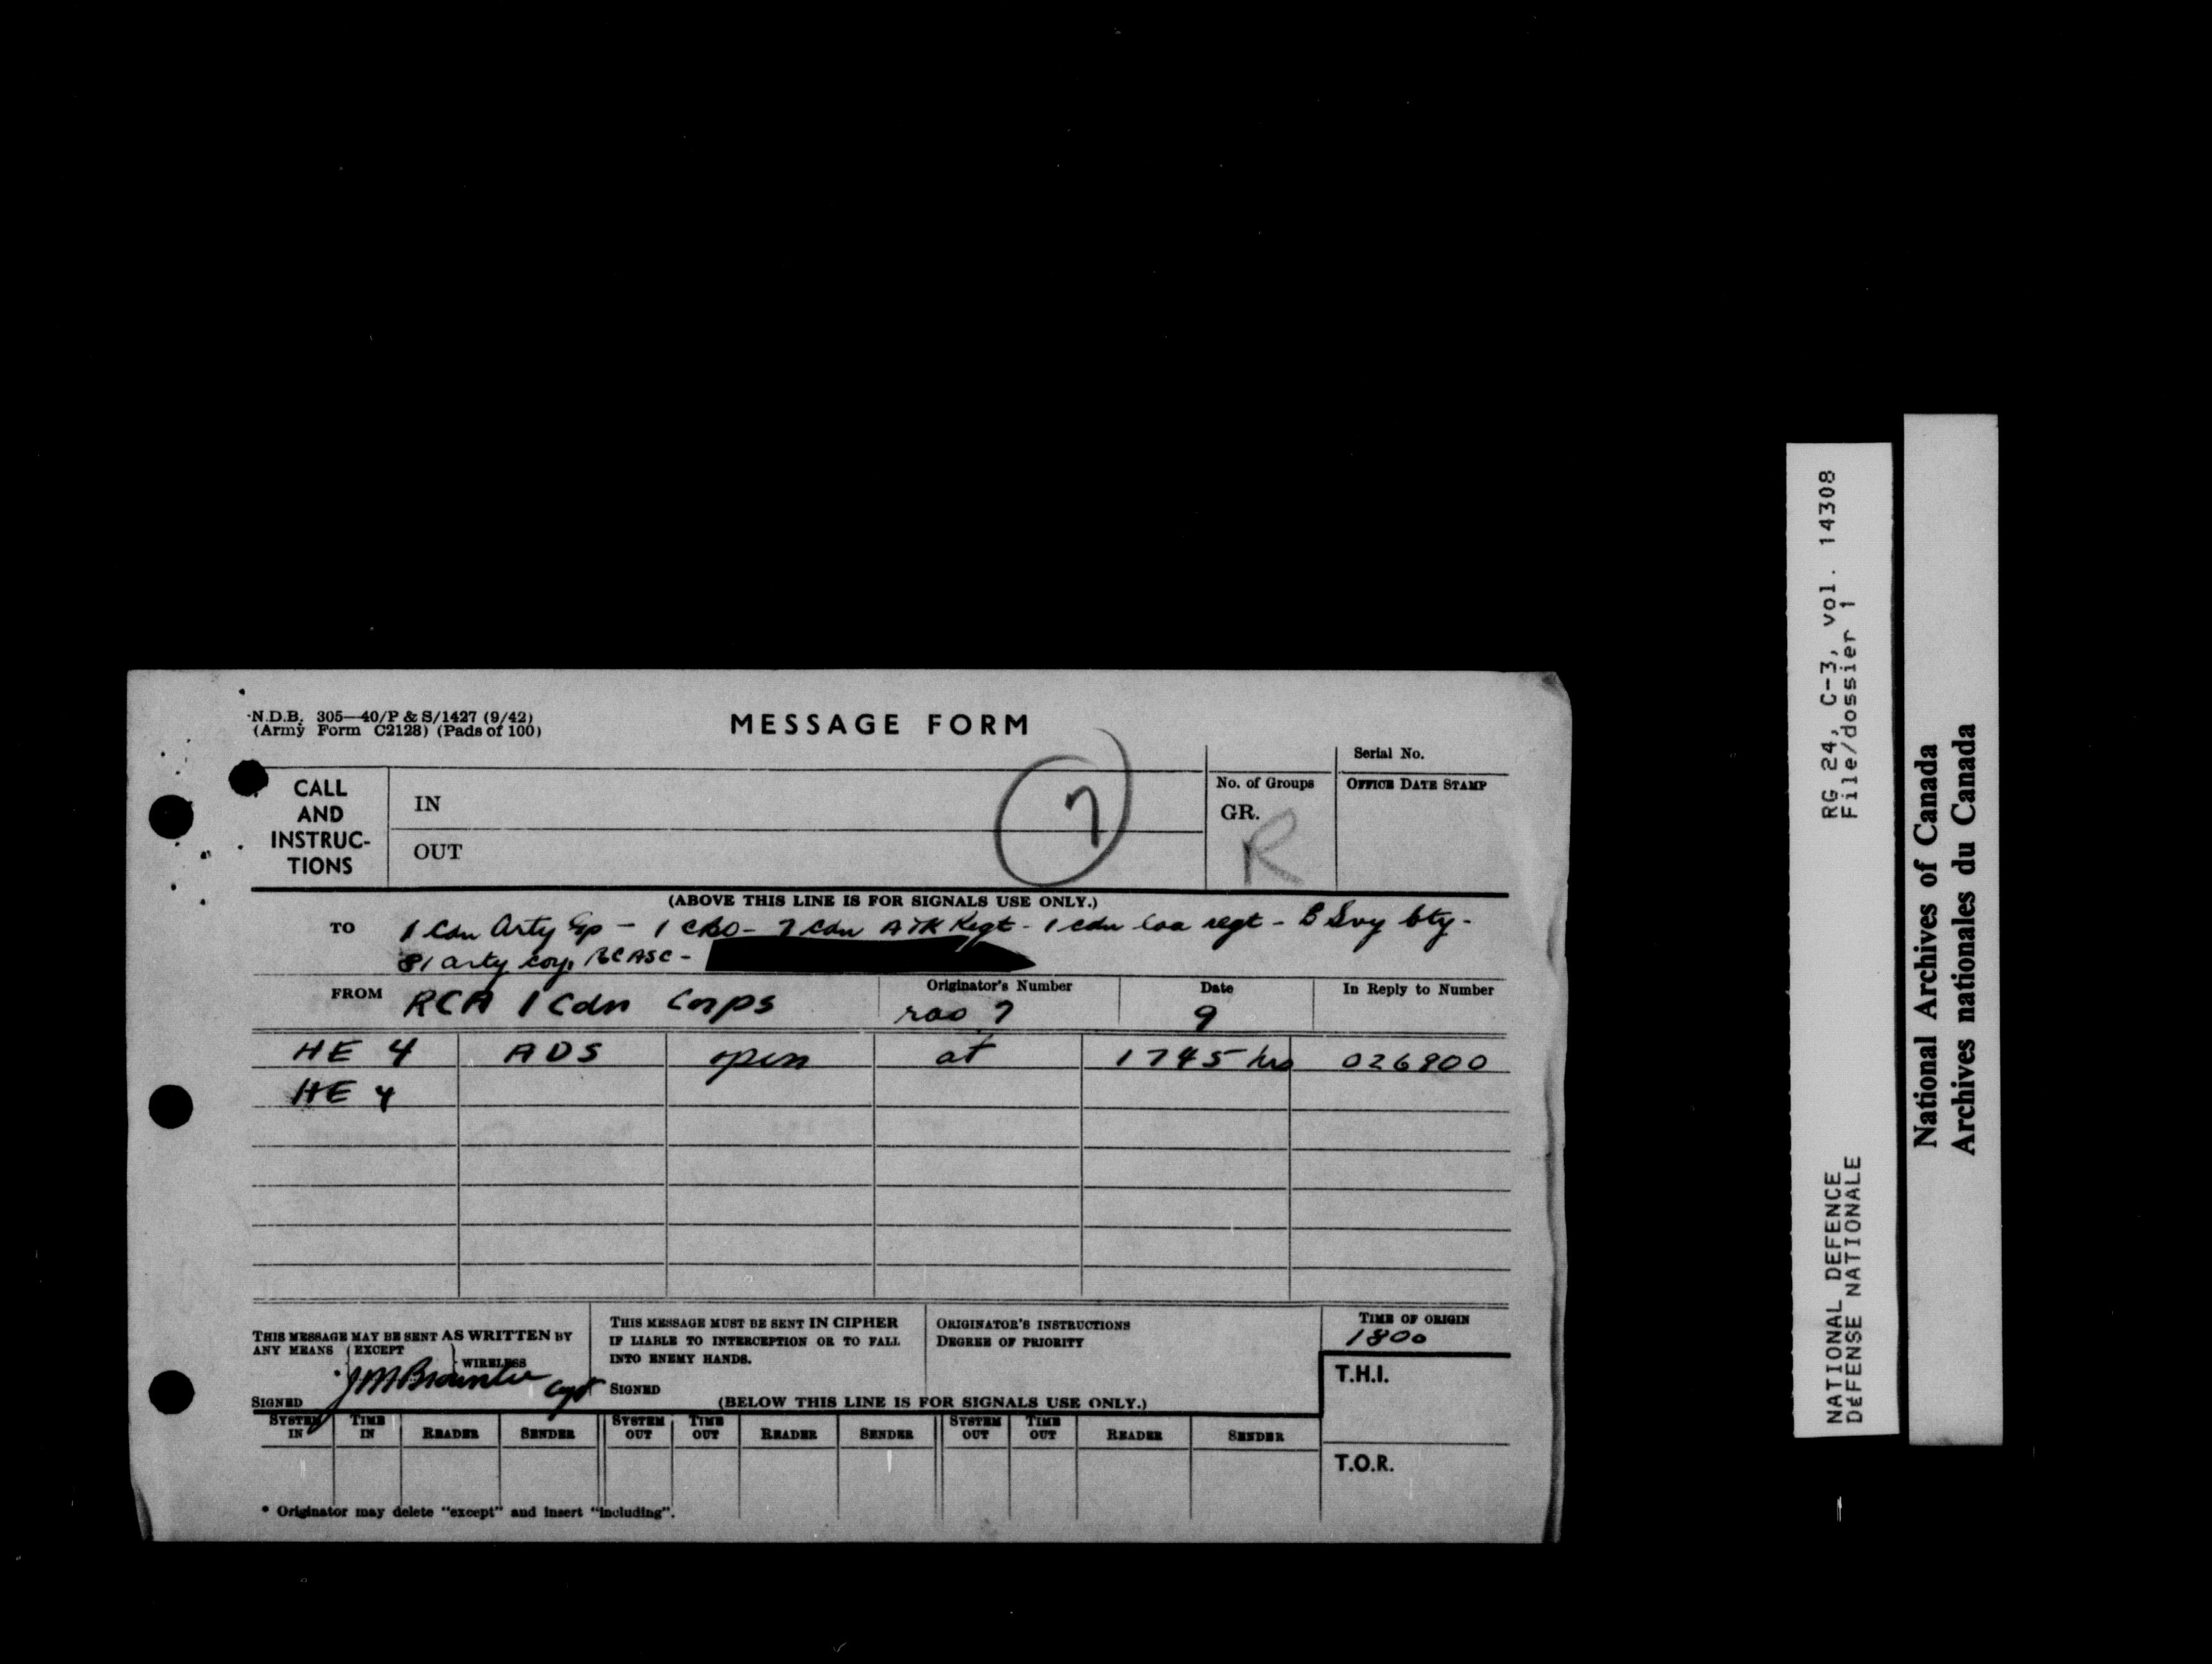 N.D.B. 305—40/P & S/1427 (9/42)
(Army Form C2128) (Pads of 100)
MESSAGE FORM
Serial No.
CALL AND INSTRUC-TIONS
IN
OUT
7
No. of Groups
GR.
R
OFFICE DATE STAMP
(ABOVE THIS LINE IS FOR SIGNALS USE ONLY.)
TO 1 Cdn Arty Gp - 1 CBO - 7 Cdn ATK Regt - 1 cdn laa regt - B Svy bty -
81 arty coy. RCASC -
FROM RCA 1 Cdn Corps
Originator's Number
rao 7
Date
9
In Reply to Number
HE 4 ADS open at 1745 hrs 026900
HE 4
THIS MESSAGE MAY BE SENT AS WRITTEN BY
ANY MEANS (EXCEPT) WIRELESS
SIGNED JM Brownlee Capt
THIS MESSAGE MUST BE SENT IN CIPHER
IF LIABLE TO INTERCEPTION OR TO FALL
INTO ENEMY HANDS.
SIGNED
ORIGINATOR'S INSTRUCTIONS
DEGREE OF PRIORITY
TIME OF ORIGIN
1800
T.H.I.
(BELOW THIS LINE IS FOR SIGNALS USE ONLY.)
SYSTEM IN TIME IN READER SENDER SYSTEM OUT TIME OUT READER SENDER SYSTEM OUT TIME OUT READER SENDER
T.O.R.
* Originator may delete "except" and insert "including".
RG 24, C-3, vol. 14308
File/dossier 1
NATIONAL DEFENCE
DÉFENSE NATIONALE
National Archives of Canada
Archives nationales du Canada